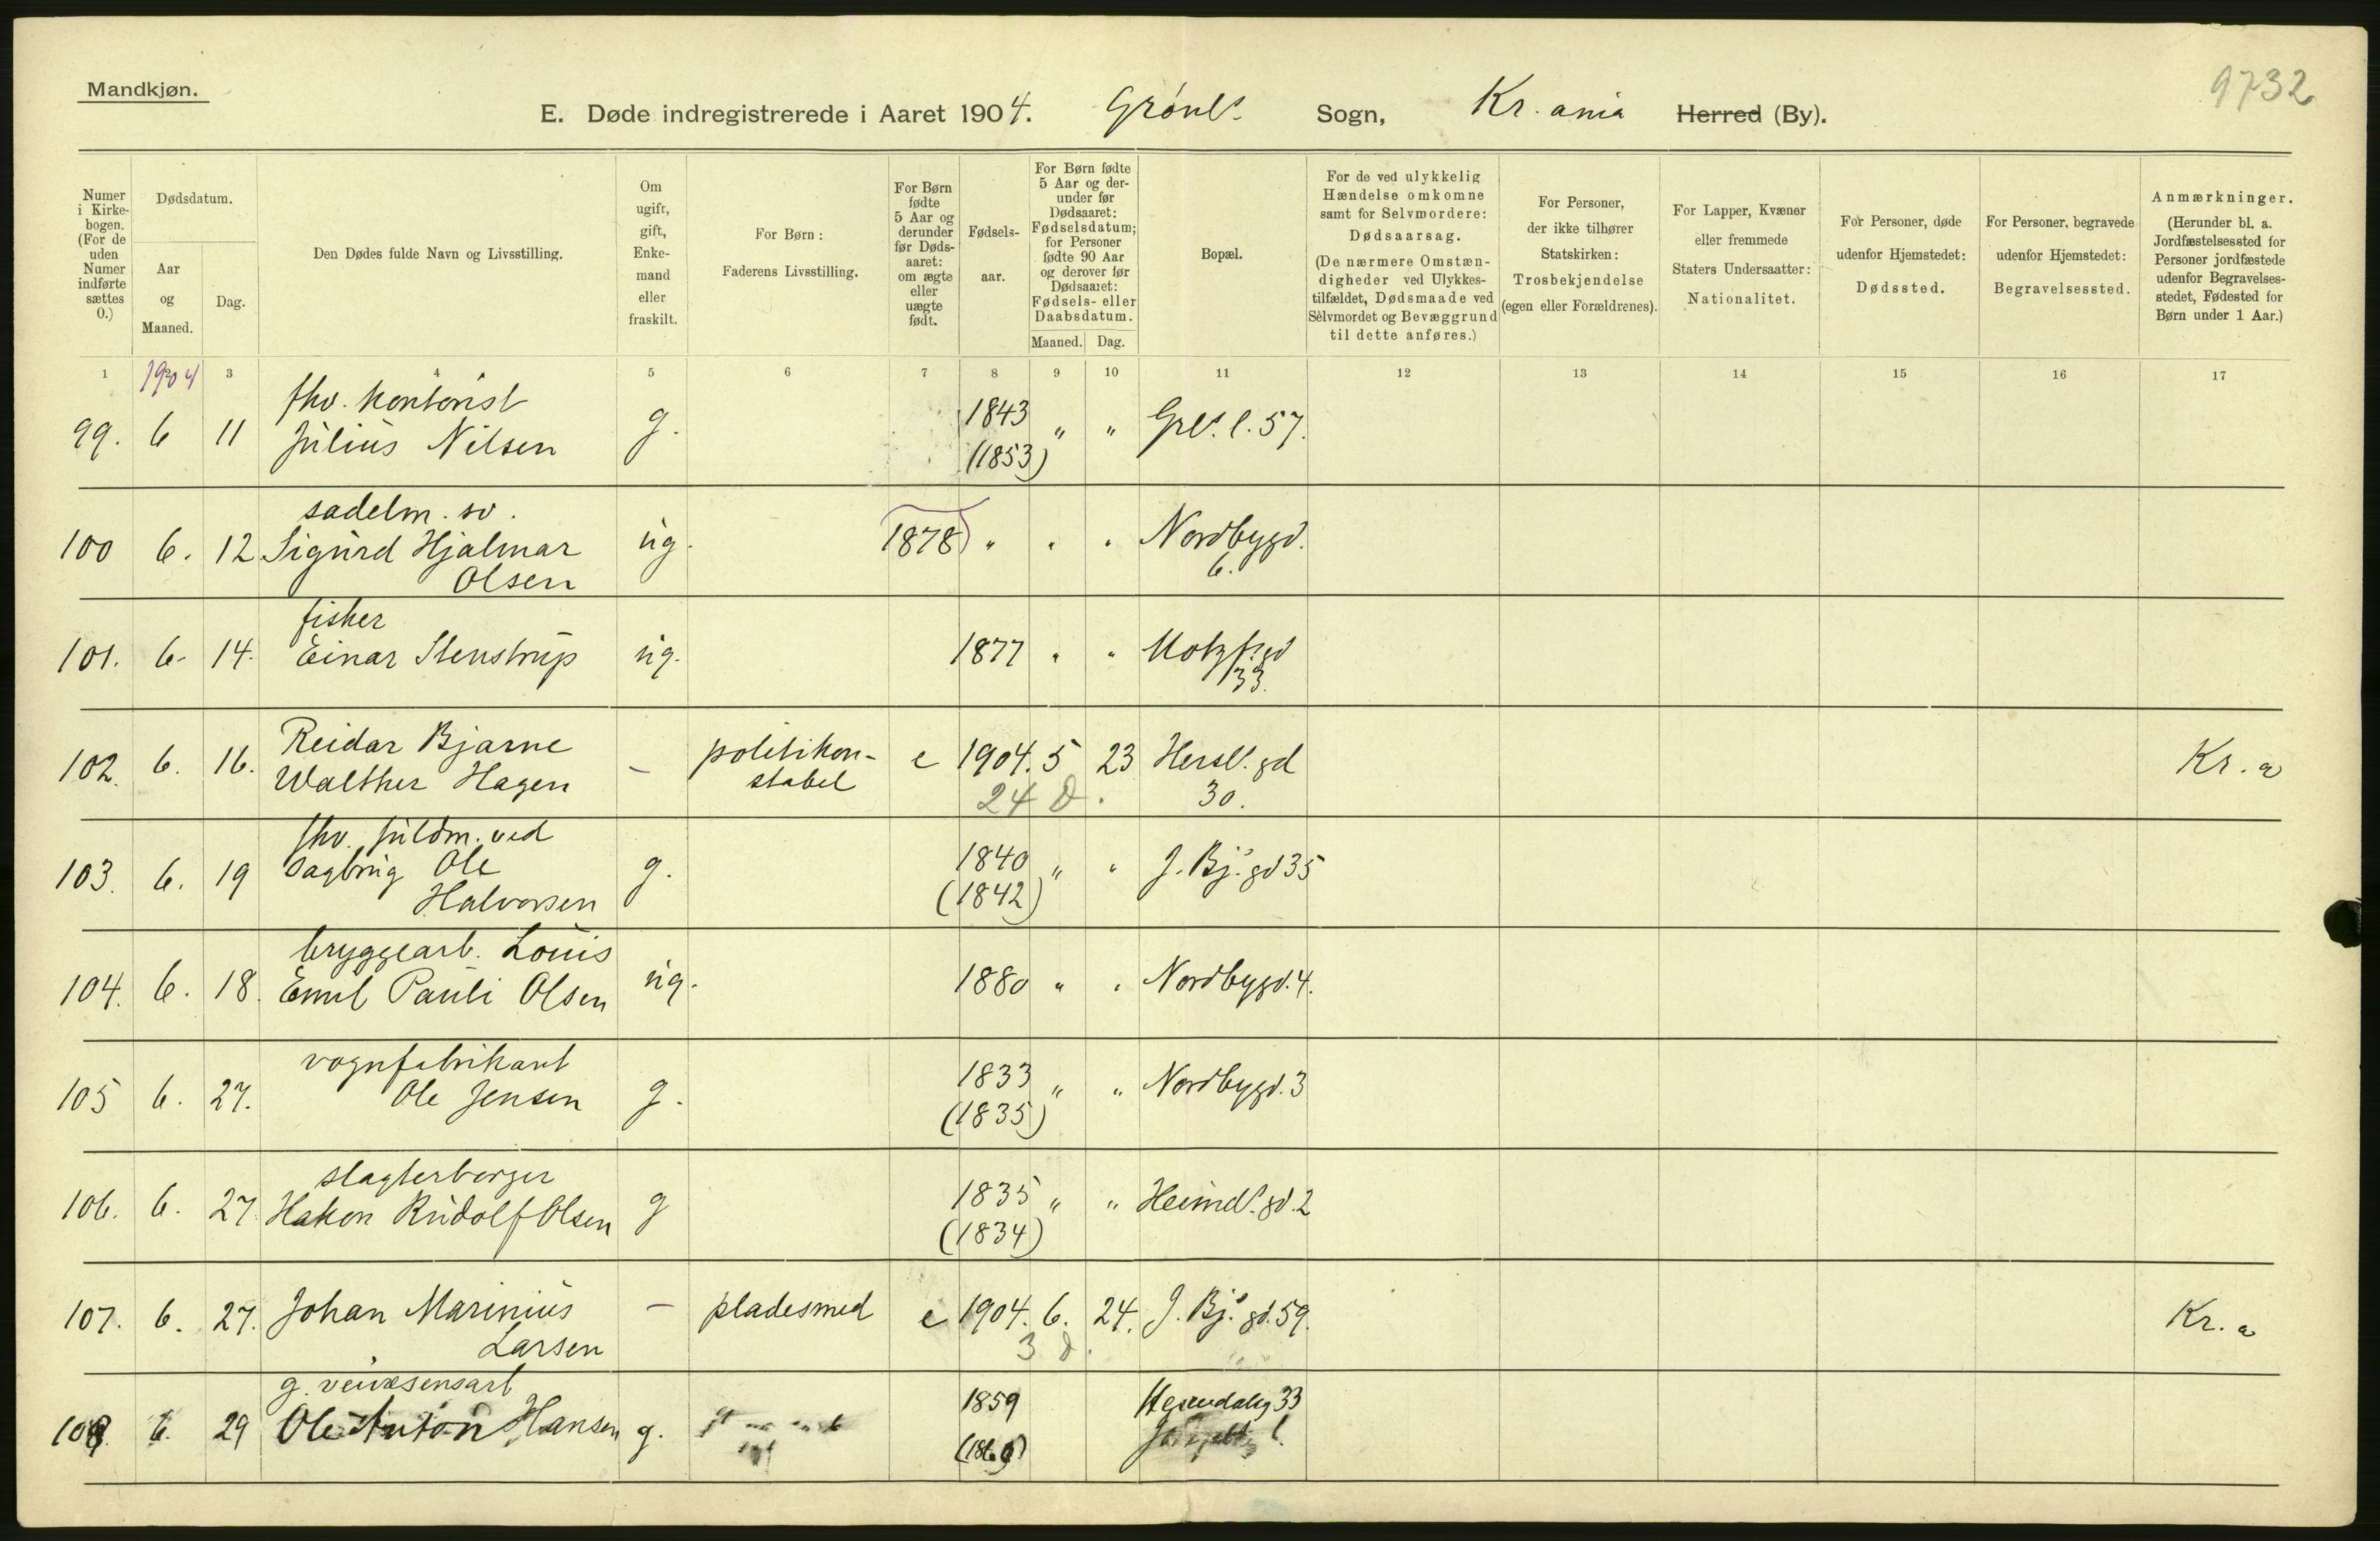 Mandkjøn.
9732
E. Døde indregistrerede i Aaret 1904. Grønl. Sogn, Kr.ania Herred (By).
Numer i Kirke-bogen. (For de uden Numer indførte sættes 0.)
Dødsdatum.
Aar og Maaned.
Dag.
Den Dødes fulde Navn og Livsstilling.
Om ugift, gift, Enke-mand eller fraskilt.
For Børn: Faderens Livsstilling.
For Børn fødte 5 Aar og derunder før Døds-aaret: om ægte eller uægte født.
Fødsels-aar.
For Børn fødte 5 Aar og der-under før Dødsaaret: Fødselsdatum; for Personer fødte 90 Aar og derover før Dødsaaret: Fødsels- eller Daabsdatum.
Maaned. Dag.
Bopæl.
For de ved ulykkelig Hændelse omkomne samt for Selvmordere: Dødsaarsag. (De nærmere Omstæn-digheder ved Ulykkes-tilfældet, Dødsmaade ved Selvmordet og Bevæggrund til dette anføres.)
For Personer, der ikke tilhører Statskirken: Trosbekjendelse (egen eller Forældrenes).
For Lapper, Kvæner eller fremmede Staters Undersaatter: Nationalitet.
For Personer, døde udenfor Hjemstedet: Dødssted.
For Personer, begravede udenfor Hjemstedet: Begravelsessted.
Anmærkninger. (Herunder bl. a. Jordfæstelsessted for Personer jordfæstede udenfor Begravelses-stedet, Fødested for Børn under 1 Aar.)
1 3 4 5 6 7 8 9 10 11 12 13 14 15 16 17
1904
fhv. kontorist
99. 6 11 Julius Nilsen g. 1843 " " Grl. l. 57.
(1853)
sadelm. sv.
100 6. 12 Sigurd Hjalmar ug. 1878 " " " Nordbygd.
Olsen 6.
fisker
101. 6. 14. Einar Stenstrup ug. 1877 " " Motzf. gd
33.
Reidar Bjarne
102. 6. 16. Walther Hagen – politikon-stabel e 1904. 5 23 Hersl. gd Kr.a
24 d. 30.
fhv. fuldm. ved
103. 6. 19 Sagbrug Ole g. 1840 " " J. Bj. gd 35
Halvorsen (1842)
bryggearb. Louis
104. 6. 18. Emil Pauli Olsen ug. 1880 " " Nordbygd. 4.
vognfabrikant
105 6. 27. Ole Jensen g. 1833 " " Nordbygd. 3
(1835)
slagterborger
106. 6. 27. Hakon Rudolf Olsen g 1835 " " Heimd. gd. 2
(1834)
107. 6. 27. Johan Marinius – pladesmed e 1904. 6. 24. J. Bj. gd. 59. Kr.a
Larsen 3 d.
g. veivæsensarb
108 6. 29 Ole Anton Hansen g. 1859 33